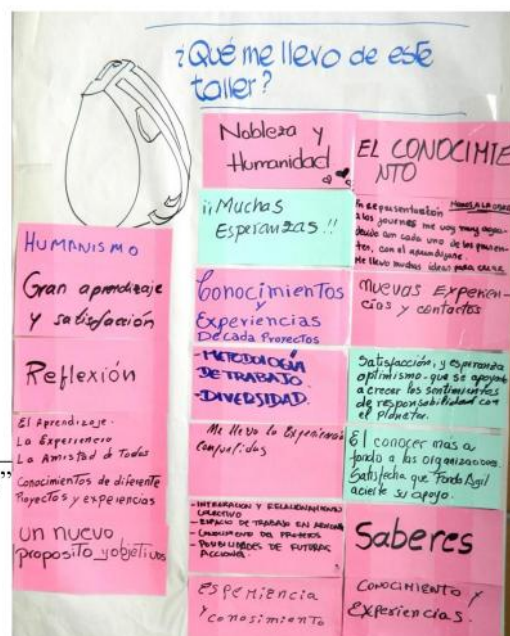 ¿Qué me llevo de este
taller?
HUMANISMO
Gran aprendizaje
y satisfacción
Reflexión
El Aprendizaje.
La Experiencia
La Amistad de Todos
Conocimientos de diferente
Proyectos y experiencias
un nuevo
proposito y objetivos
Nobleza y
Humanidad
¡¡Muchas
Esperanzas!!
Conocimientos
y
Experiencias
De cada Proyectos
-METODOLOGÍA
DE TRABAJO
-DIVERSIDAD.
Me llevo la Experiencia
compartidas
- INTEGRACION Y RELACIONAMIENTO
COLECTIVO
- ESPACIO DE TRABAJO EN
- CONOCIMIENTO DEL PROYECTOS
- POSIBILIDADES DE FUTURAS
ACCIONES
ESPERIENCIA
Y CONOSIMIENTO
EL CONOCIMIE
NTO
En representación MANOS A LA OBRA
a los jovenes me voy muy agra-
decido con cada uno de los presen-
tes, con el aprendizaje.
Me llevo muchas ideas para crear
Nuevas Experien-
cias y contactos
Satisfacción, y esperanza
optimismo - que se apoyado
a crecer los sentimientos
de responsabilidad con
el planeta.
El conocer más a
fondo a las organizaciones.
Satisfecha que Fondo Agil
acierte su apoyo.
Saberes
CONOCIMIENTO Y
EXPERIENCIAS.
”